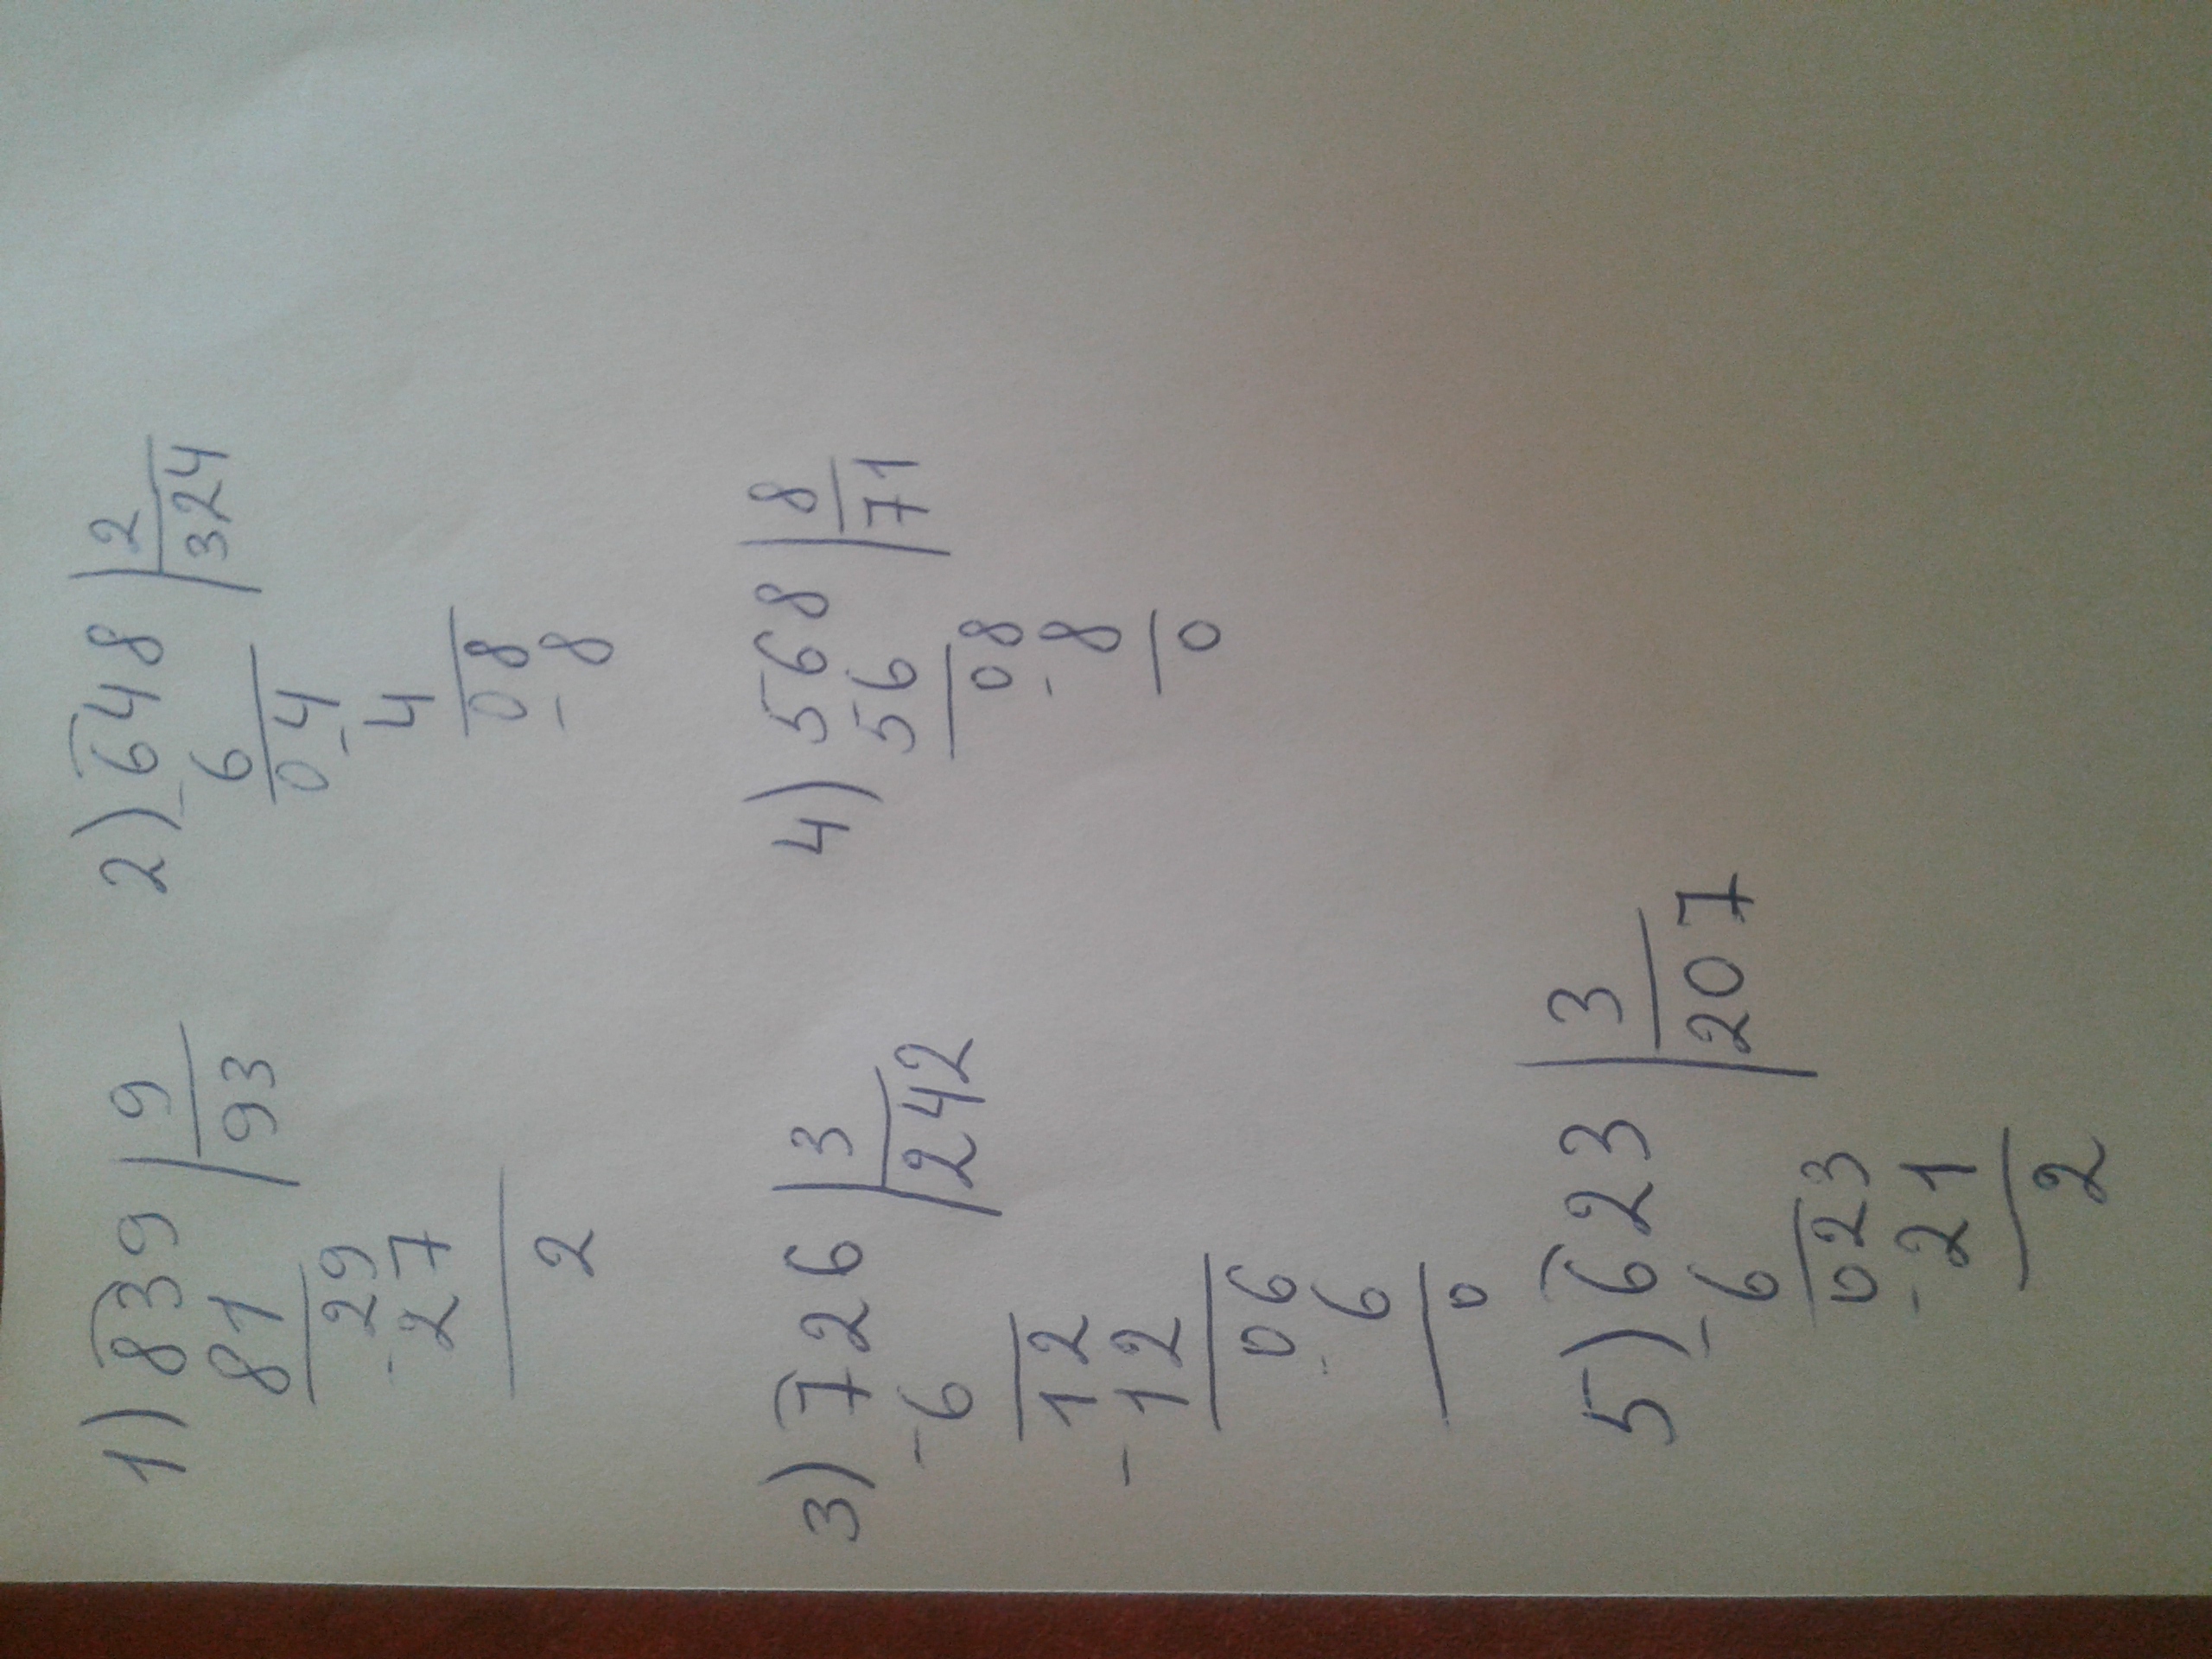 1) 839 | 9
81 | 93
29
- 27
2
2) 648 | 2
- 6 | 324
04
- 4
08
- 8
3) 726 | 3
- 6 | 242
12
- 12
06
- 6
0
4) 568 | 8
56 | 71
08
- 8
0
5) 623 | 3
- 6 | 207
023
- 21
2